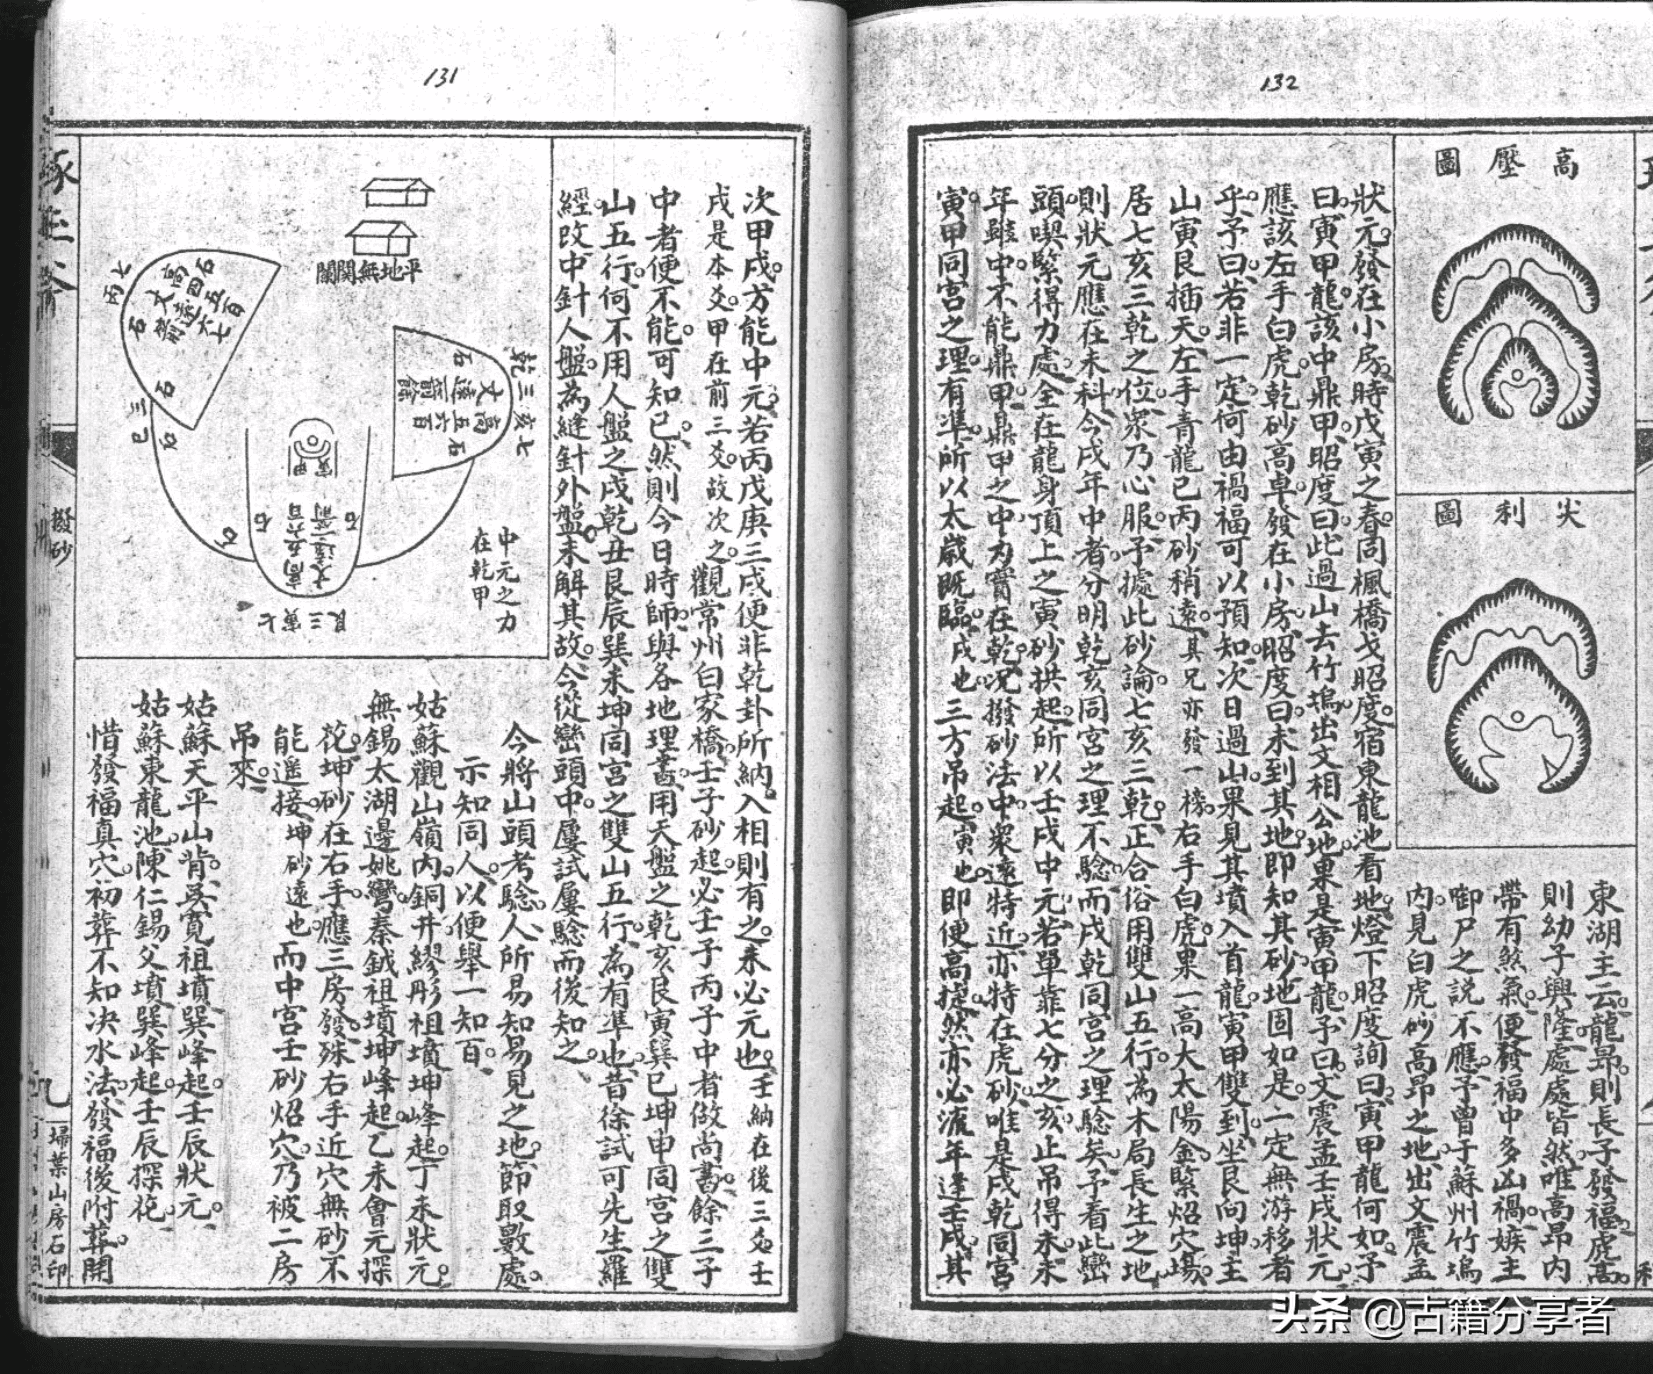 132
高壓圖
尖利圖
東湖主云龍昂則長子發福虎高
則幼子興隆處處皆然唯高昂內
帶有煞氣便發福中多凶禍嫉主
啣尸之說不應予曾于蘇州竹塢
內見白虎砂高昂之地出文震孟
狀元發在小房時戊寅之春同楓橋戈昭度宿東龍池看地燈下昭度詢曰寅甲龍何如予
曰寅甲龍該中鼎甲昭度曰此過山去竹塢出文相公地果是寅甲龍予曰文震孟壬戌狀元
應該左手白虎乾砂高卓發在小房昭度曰未到其地即知其砂地固如是一定無游移者
乎予曰若非一定何由禍福可以預知次日過山果見其墳入首龍寅甲雙到坐艮向坤主
山寅艮插天左手青龍巳丙砂稍遠其兄亦發一榜右手白虎果一高大太陽金緊炤穴場
居七亥三乾之位眾乃心服予據此砂論七亥三乾正合俗用雙山五行為木局長生之地
則狀元應在未科今戌年中者分明乾亥同宮之理不驗而戌乾同宮之理驗矣予看此巒
頭喫緊得力處全在龍身頂上之寅砂拱起所以壬戌中元若單靠七分之亥止吊得未未
年雖中不能鼎甲鼎甲之中為實在乾況撥砂法中眾遠特近亦特在虎砂唯是戌乾同宮
寅甲同宮之理有準所以太歲既臨戌也三方吊起寅也即便高捷然亦必流年逢壬戌其
131
次甲戌方能中元若丙戊庚三戌便非乾卦所納入相則有之未必元也壬納在後三爻壬
戌是本爻甲在前三爻故次之觀常州白家橋壬子砂起必壬子丙子中者做尚書餘三子
中者便不能可知已然則今日時師與各地理書用天盤之乾亥艮寅巽巳坤申同宮之雙
山五行何不用人盤之戌乾丑艮辰巽未坤同宮之雙山五行為有準也昔徐試可先生羅
經改中針人盤為縫針外盤未解其故今從巒頭中屢試屢驗而後知之
平地無關闌
七丙
三巳
石高四五百
丈遠六七
石
石
石
乾三亥七
石
石
高五六百
丈遠
寅甲
石
石
石
高五六百
丈遠一箭
艮三寅七
中元之力
在乾甲
今將山頭考驗人所易知易見之地節取數處
示知同人以便舉一知百
姑蘇觀山嶺內銅井繆彤祖墳坤峰起丁未狀元
無錫太湖邊姚灣秦鉞祖墳坤峰起乙未會元探
花坤砂在右手應三房發殊右手近穴無砂不
能遥接坤砂遠也而中宮壬砂炤穴乃被二房
吊來
姑蘇天平山背吳寬祖墳巽峰起壬辰狀元
姑蘇東龍池陳仁錫父墳巽峰起壬辰探花
惜發福真穴初葬不知決水法發福後附葬開
撥砂
九
掃葉山房石印
头条 @古籍分享者